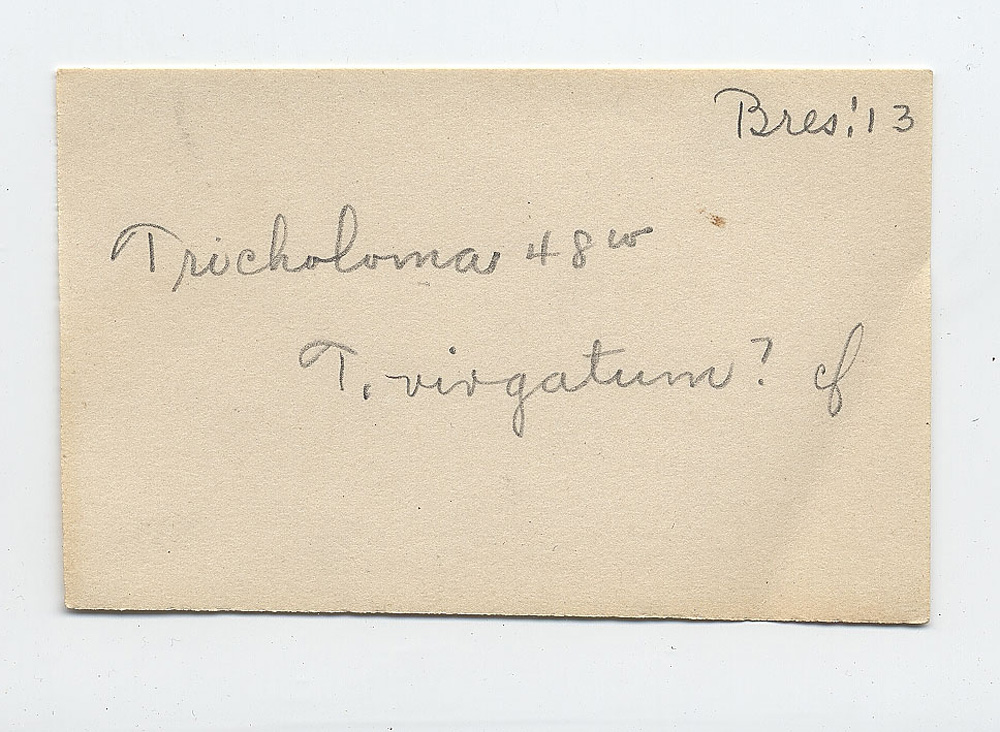 Bres. '13
Tricholoma 48w
T. virgatum? cf